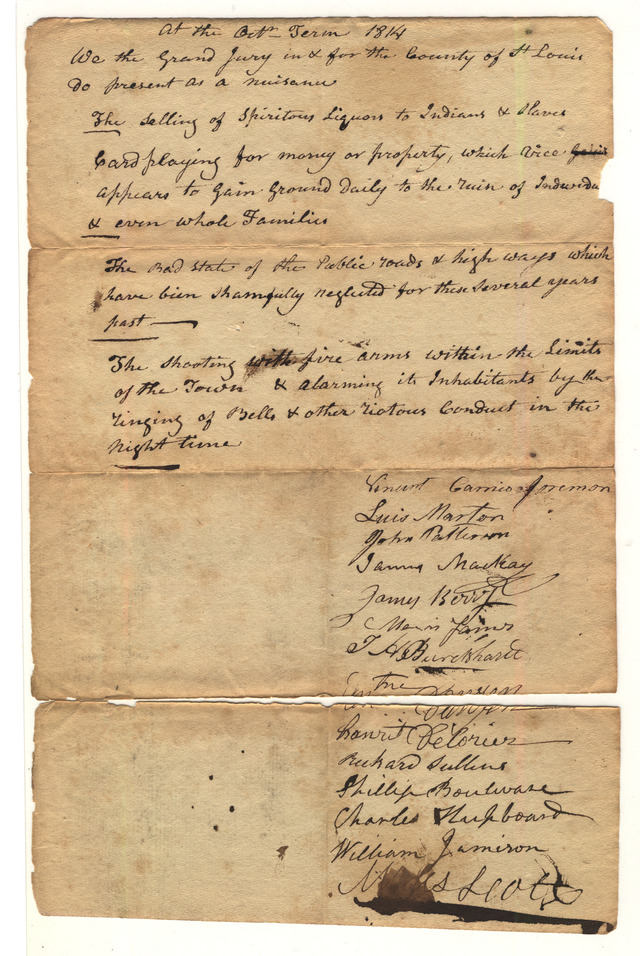 At the Octr Term 1814
We the Grand Jury in & for the County of St Louis
do present as a nuisance
The Selling of Spiritous Liquors to Indians & Slaves
Cardplaying for money or property, which vice
appears to Gain Ground Daily to the ruin of Individu
& even whole Families
The Bad state of the Public roads & high ways which
have been shamfully neglected for these several years
past
The shooting with fire arms within the Limits
of the Town & alarming its Inhabitants by the
ringing of Bells & other riotous Conduct in the
Night time
Vincent Carrico foreman
Luis Marton
John Patterson
James Mackay
James Berry
James
T H Burckhardt
Richard Sullins
Phillip Boulware
Charles Hupboard
William Jamison
Scott